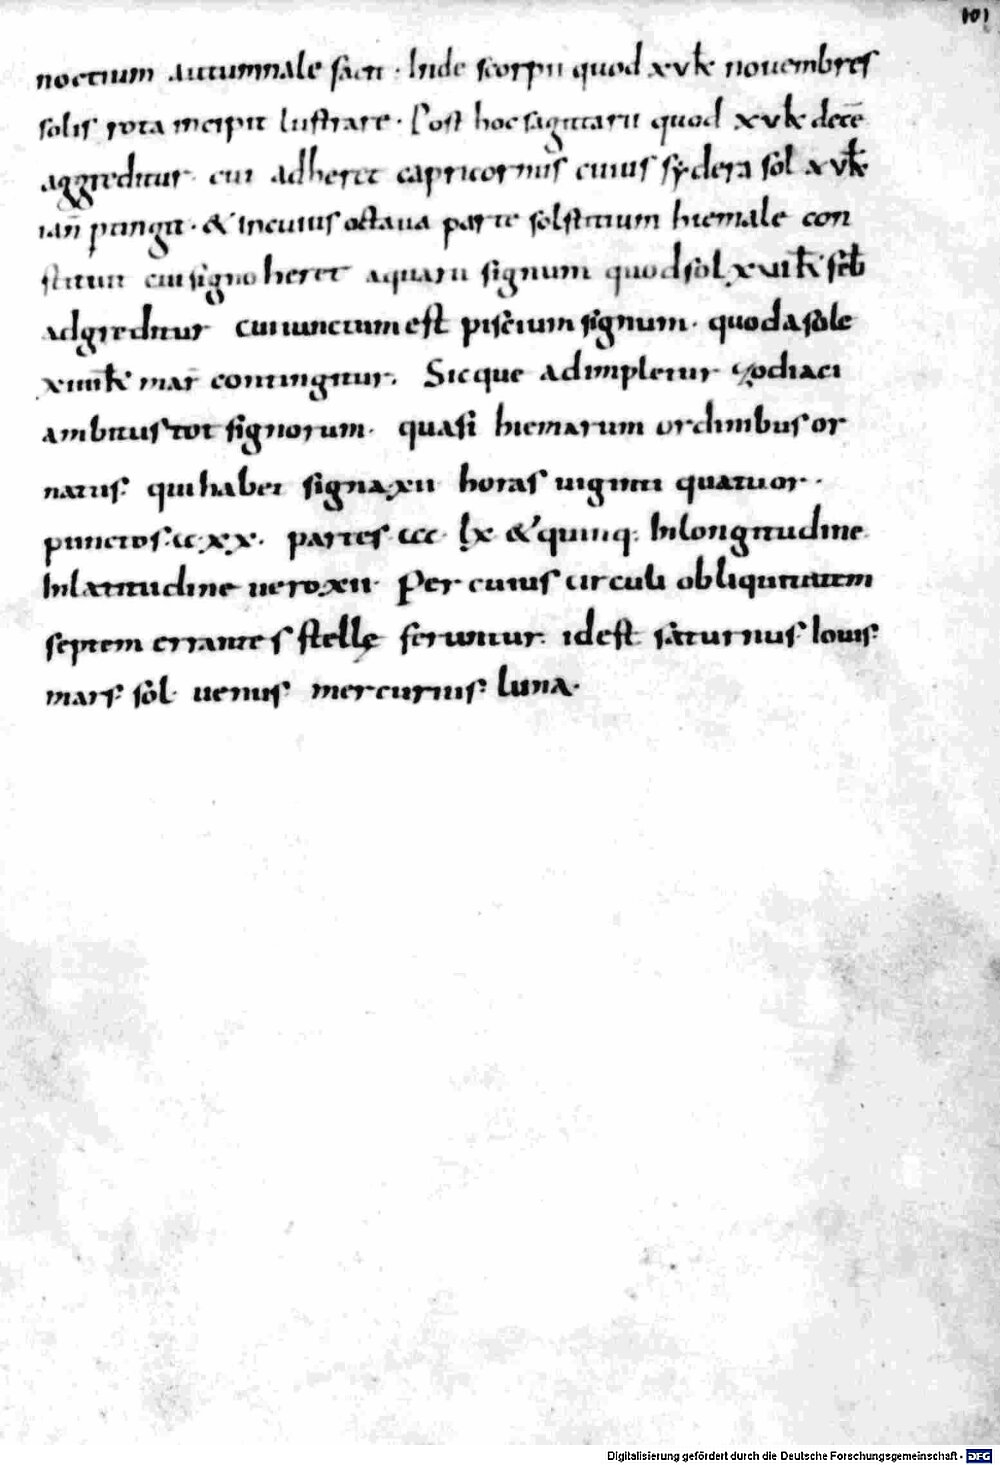 101
noctium autumnale facit · Inde scorpii quod xvk̄ nouembres
solis rota incipit lustrare · Post hoc sagittarii quod xvk̄ decē
aggreditur · cui adheret capricornus cuius sydera sol xvk̄
ian̄ pungit · & in cuius octaua parte solstitium hiemale con
stituit cui signo heret aquarii signum quod sol xviik̄ feb̄
adgreditur cui iunctum est piscium signum · quod a sole
xiiiik̄ mar̄ contingitur. Sicque adimpletur zodiaci
ambitus tot signorum · quasi hiemarum ordinibus or
natus · qui habet signa xii horas uiginti quatuor ·
punctos · cc · xx · partes ccc · lx & quinq · In longitudine
In latitudine uero xii · Per cuius circuli obliquitatem
septem errantes stellę feruntur · id est saturnus · Iouis ·
mars · sol · uenus mercurius · luna ·
Digitalisierung gefördert durch die Deutsche Forschungsgemeinschaft - DFG